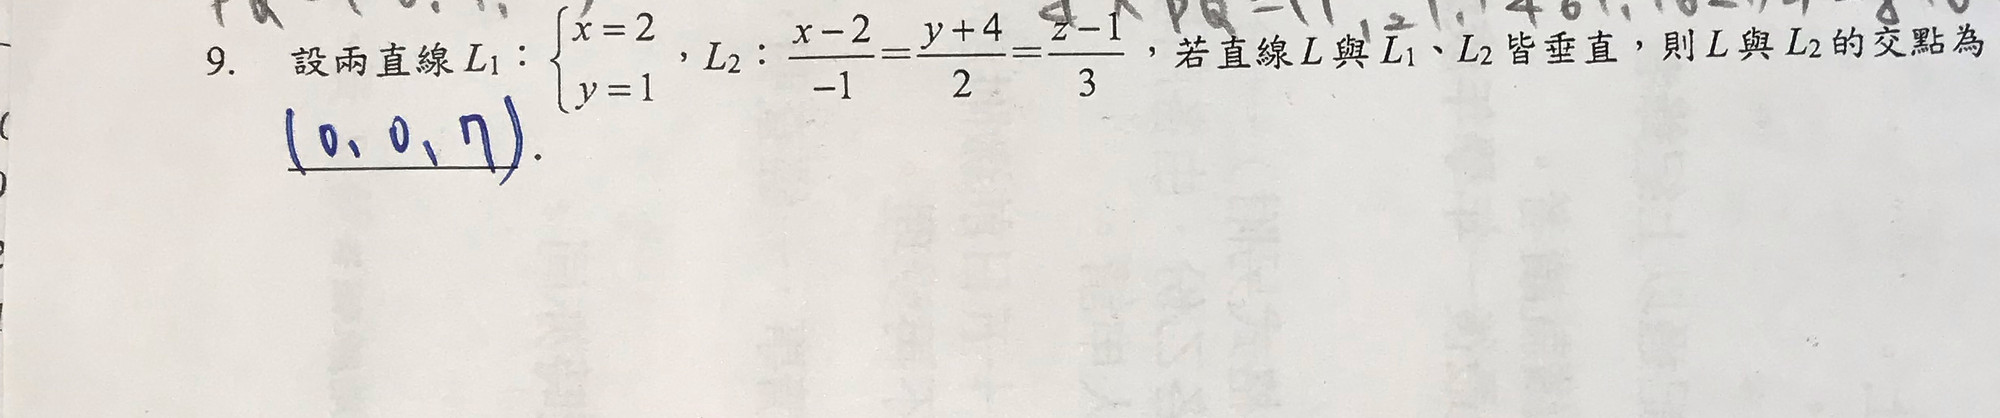 9. 設兩直線 L₁：{x=2, y=1，L₂：(x-2)/-1=(y+4)/2=(z-1)/3，若直線 L 與 L₁、L₂ 皆垂直，則 L 與 L₂ 的交點為
(0、0、7).